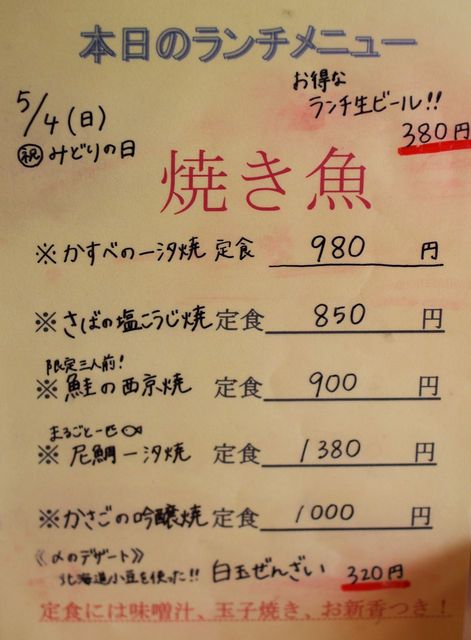 本日のランチメニュー
お得な
ランチ生ビール!!
380円
5/4(日)
㊗みどりの日
焼き魚
※かすべの一汐焼 定食 980 円
※さばの塩こうじ焼 定食 850 円
限定三人前!
※鮭の西京焼 定食 900 円
まるごと一匹
※尼鯛一汐焼 定食 1380 円
※かさごの吟醸焼 定食 1000 円
《〆のデザート》
北海道小豆を使った!! 白玉ぜんざい 320円
定食には味噌汁、玉子焼き、お新香つき!